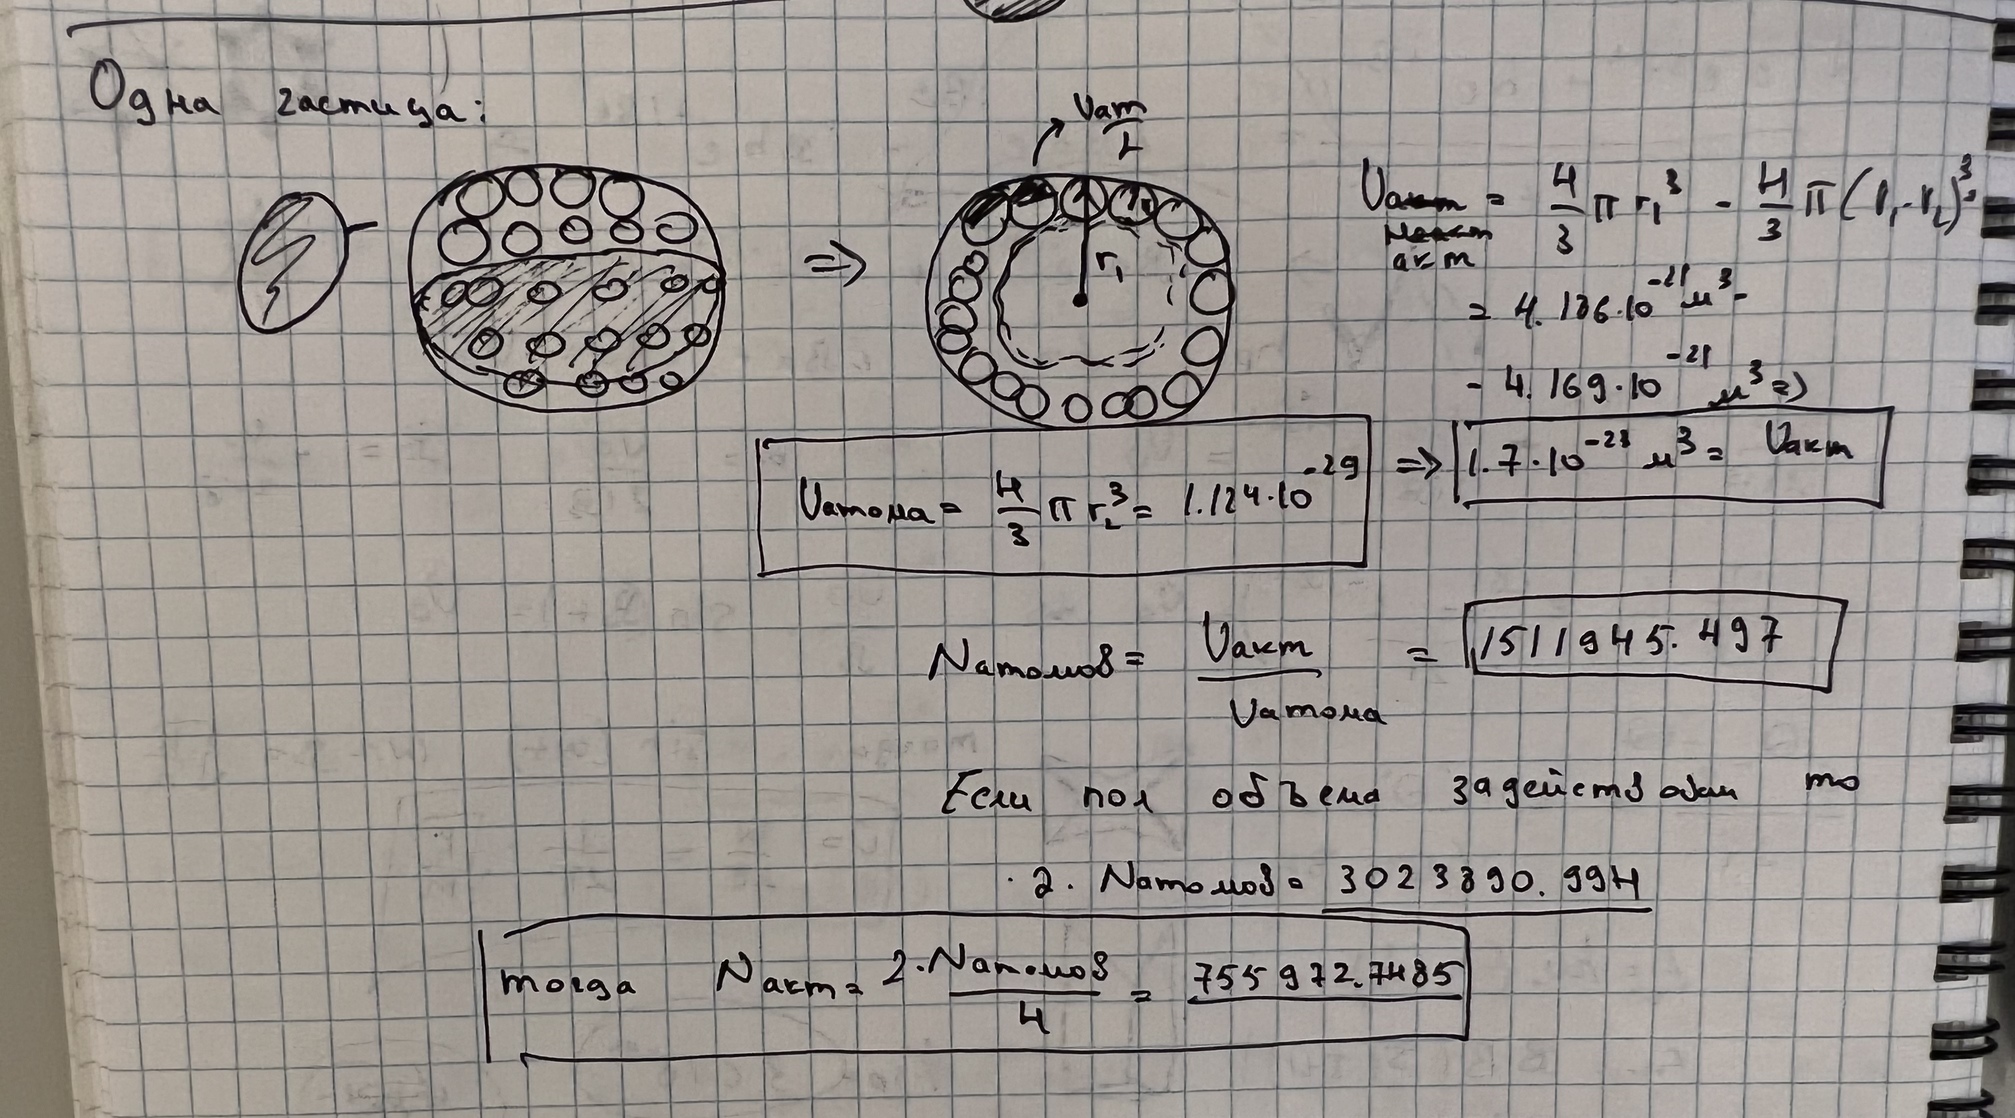 Одна частица:
Vат/2
r₁
Vакт = 4/3 π r₁³ - 4/3 π (r₁-r₂)³ =
акт
= 4.186·10⁻²¹ м³ -
- 4.169·10⁻²¹ м³ =>
Vатома = 4/3 π r₂³ = 1.124·10⁻²⁹
=> 1.7·10⁻²³ м³ = Vакт
Nатомов = Vакт/Vатома = 1511945.497
Если пол объема задействован то
2. Nатомов = 3023890.994
тогда Nакт = 2·Nатомов/4 = 755972.7485